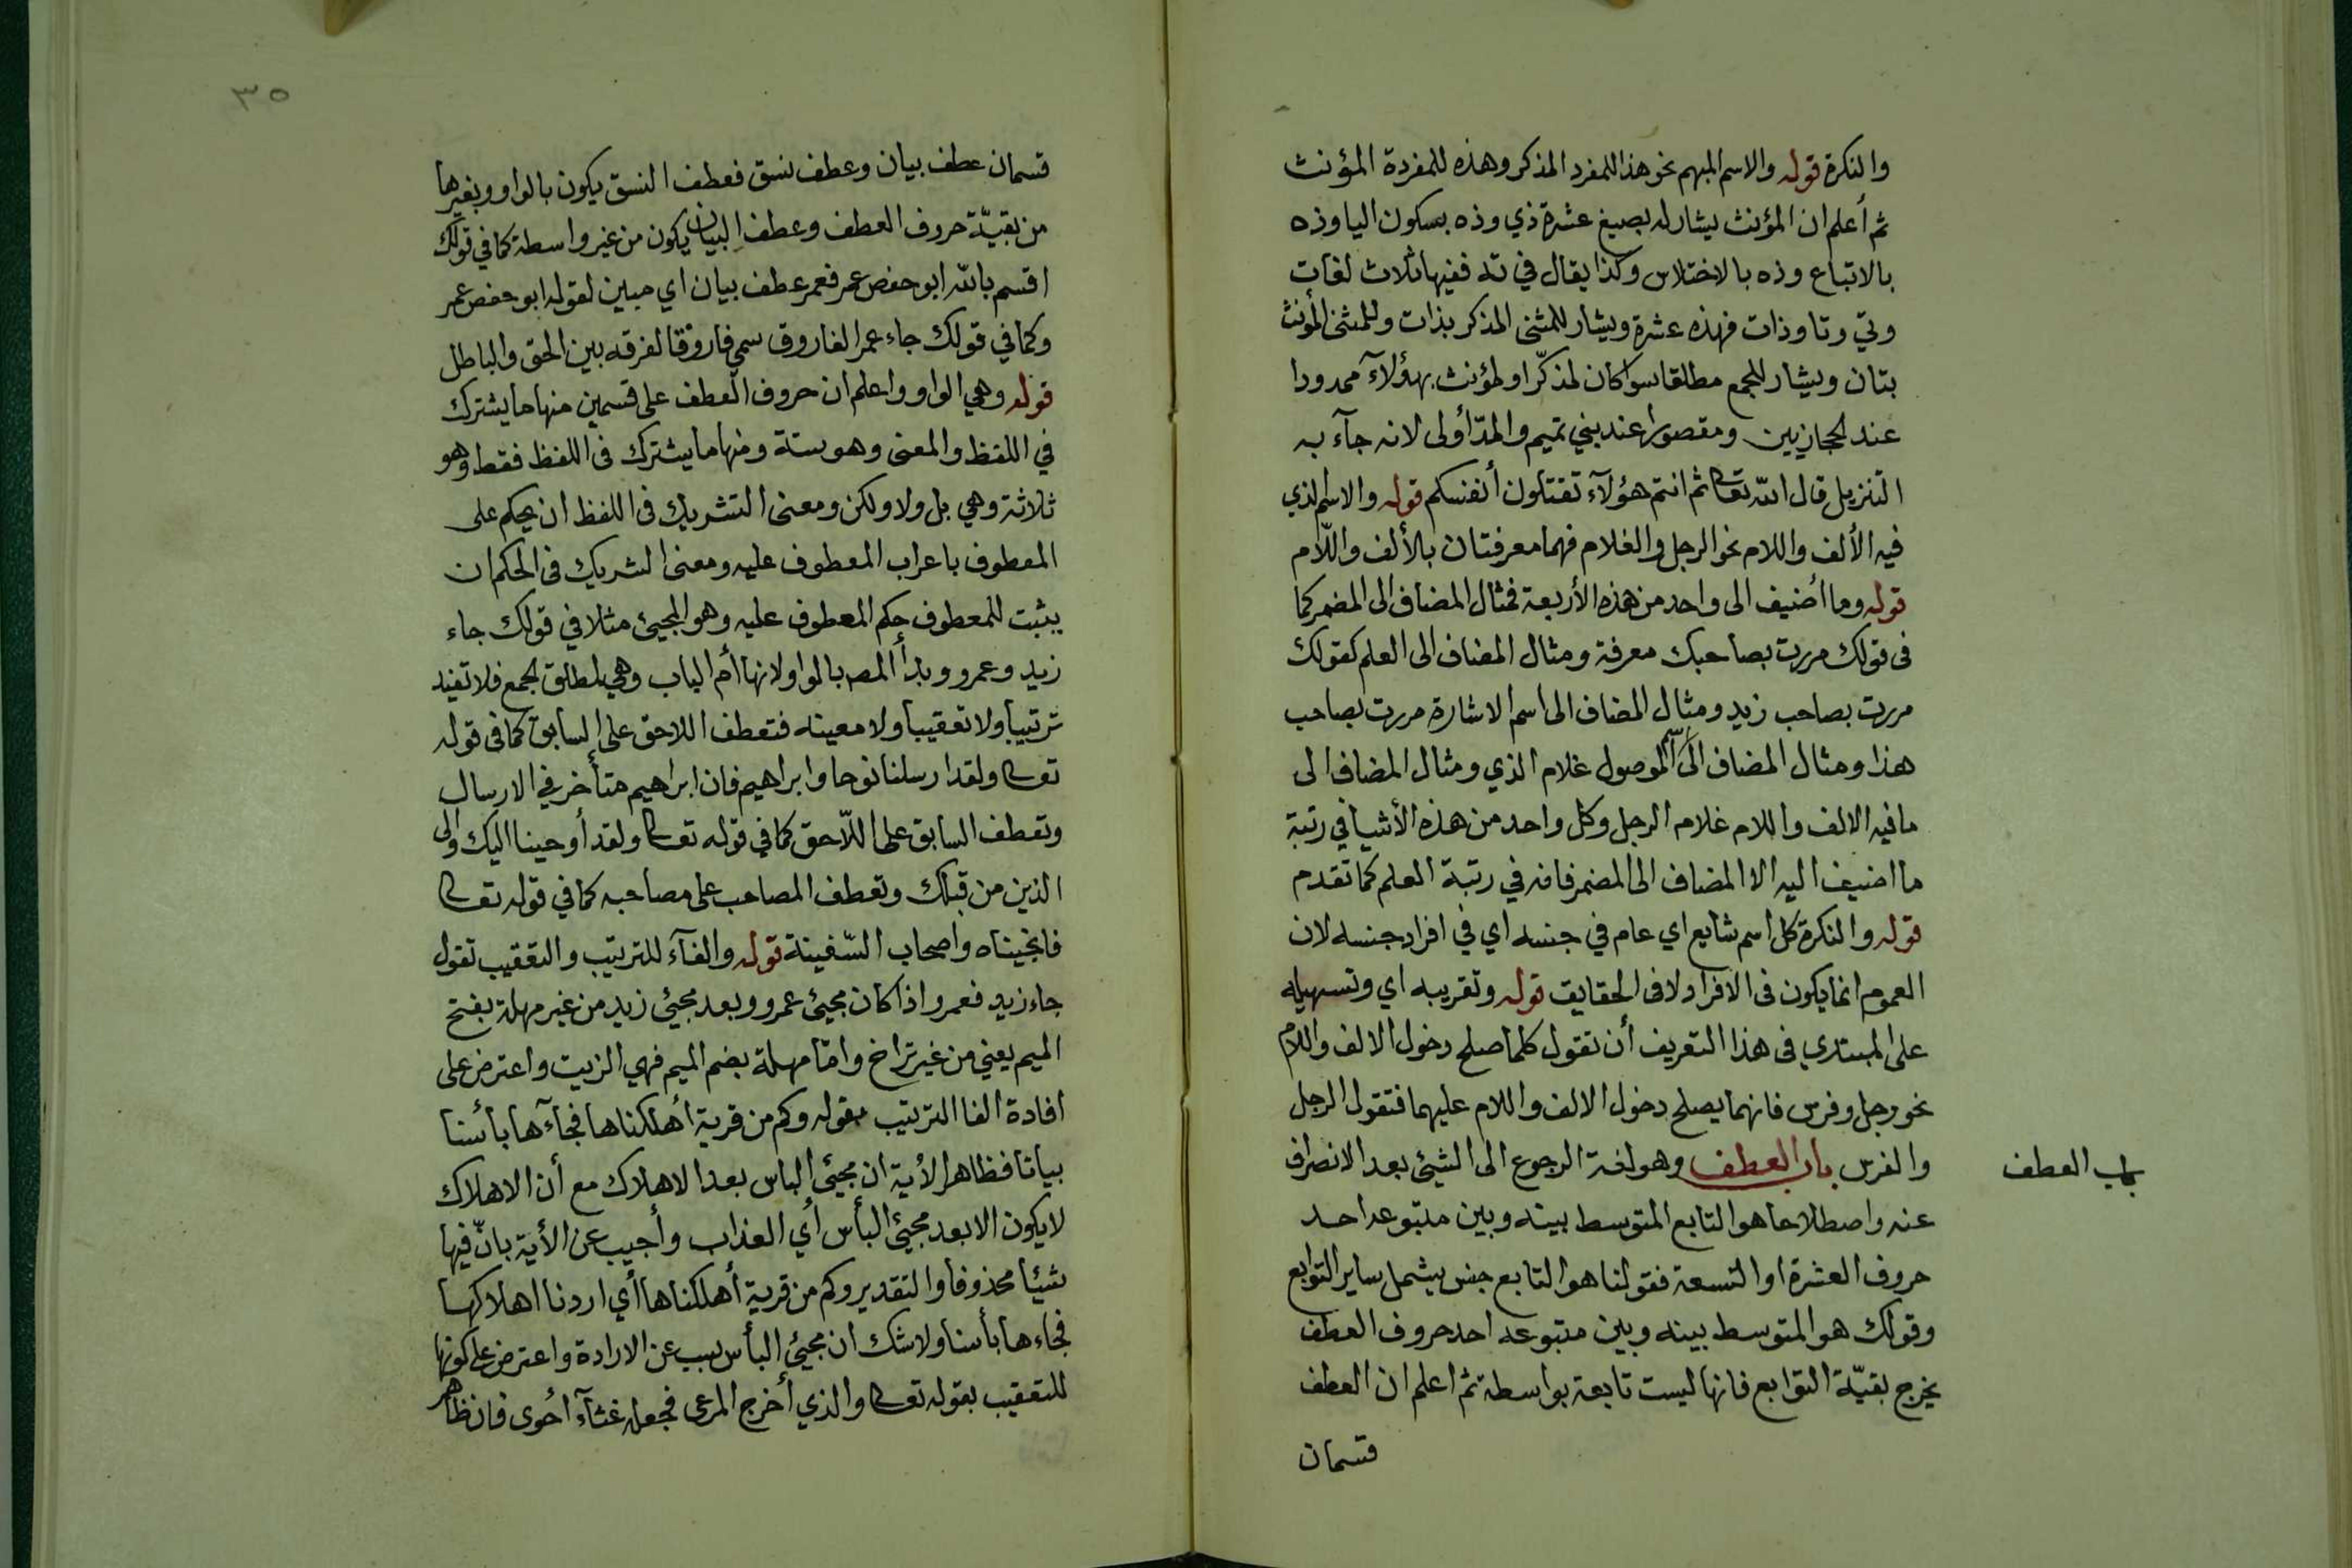 والنكرة قوله والاسم المبهم نحو هذا للمفرد المذكر وهذه للمفردة المؤنث
ثم أعلم ان المؤنث يشار له بصيغ عشرة ذي وذه بسكون اليا وذه
بالاتباع وذه بالاختلاس وكذا يقال في ته ففيها ثلاث لغات
وتي وتا وذات فهذه عشرة ويشار للمثنى المذكر بذات وللمثنى المؤنث
بتان ويشار للجمع مطلقا سوا كان لمذكّر او لمؤنث بهؤلآء ممدودا
عند الحجازيين ومقصورا عند بني تميم والمدّ أولى لانه جآء به
التنزيل قال الله تعا ثم انتم هؤلآء تقتلون أنفسكم قوله والاسم الذي
فيه الألف واللام نحو الرجل والغلام فهما معرفتان بالألف واللّام
قوله وما أضيف الى واحد من هذه الأربعة فمثال المضاف الى المضمر كما
في قولك مررت بصاحبك معرفة ومثال المضاف الى العلم كقولك
مررت بصاحب زيد ومثال المضاف الى اسم الاشارة مررت بصاحب
هذا ومثال المضاف الى اسم الموصول غلام الذي ومثال المضاف الى
ما فيه الالف واللام غلام الرجل وكل واحد من هذه الأشيا في رتبة
ما اضيف اليه الا المضاف الى المضمر فانه في رتبة العلم كما تقدم
قوله والنكرة كل اسم شايع اي عام في جنسه اي في افراد جنسه لان
العموم انما يكون في الافراد لا في الحقايق قوله وتقريبه اي وتسهيله
على المبتدي في هذا التعريف أن تقول كلما صلح دخول الالف واللام
نحو رجل وفرس فانهما يصلح دخول الالف واللام عليهما فتقول الرجل
والفرس باب العطف وهو لغة الرجوع الى الشيئ بعد الانصراف
باب العطف
عنه واصطلاحا هو التابع المتوسط بينه وبين متبوعه احد
حروف العشرة او التسعة فقولنا هو التابع جنس يشمل ساير التوابع
وقولك هو المتوسط بينه وبين متبوعه احد حروف العطف
يخرج بقيّة التوابع فانها ليست تابعة بواسطة ثم اعلم ان العطف
قسمان
٣٥
قسمان عطف بيان وعطف نسق فعطف النسق يكون بالواو وبغيرها
من بقيّة حروف العطف وعطف البيان يكون من غير واسطة كما في قولك
اقسم بالله ابو حفص عمر فعمر عطف بيان اي مبين لقوله ابو حفص عمر
وكما في قولك جاء عمر الفاروق سمي فاروقا لفرقه بين الحق والباطل
قوله وهي الواو واعلم ان حروف العطف على قسمين منها ما يشترك
في اللفظ والمعنى وهو ستة ومنها ما يشترك في اللفظ فقط وهو
ثلاثة وهي بل ولا ولكن ومعنى التشريك في اللفظ ان يحكم على
المعطوف باعراب المعطوف عليه ومعنى التشريك في الحكم ان
يثبت للمعطوف حكم المعطوف عليه وهو المجيئ مثلا في قولك جاء
زيد وعمرو وبدأ المص بالواو لانها أم الباب وهي لمطلق الجمع فلا تفيد
ترتيبا ولا تعقيبا ولا معينه فتعطف اللاحق على السابق كما في قوله
تعا ولقد ارسلنا نوحا وابراهيم فان ابراهيم متأخر في الارسال
وتعطف السابق على اللّاحق كما في قوله تعا ولقد أوحينا اليك والى
الذين من قبلك وتعطف المصاحب على مصاحبه كما في قوله تعا
فانجيناه واصحاب السّفينة قوله والفآء للترتيب والتعقيب تقول
جاء زيد فعمرو اذا كان مجيئ عمرو وبعد مجيئ زيد من غير مهلة بفتح
الميم يعني من غير تراخ وامّا مهلة بضم الميم فهي الزيت واعترض على
افادة الفا الترتيب بقوله وكم من قرية أهلكناها فجآءها بأسنا
بياتا فظاهر الأية ان مجيئ الباس بعد الاهلاك مع أن الاهلاك
لا يكون الا بعد مجيئ البأس أي العذاب وأجيب عن الأية بانّ فيها
شيئا محذوفا والتقدير وكم من قرية أهلكناها أي اردنا اهلاكها
فجاءها بأسنا ولا شك ان مجيئ البأس سبب عن الارادة واعترض على كونها
للتعقيب بقوله تعا والذي أخرج المرعى فجعله غثآء أحوى فان ظاهر